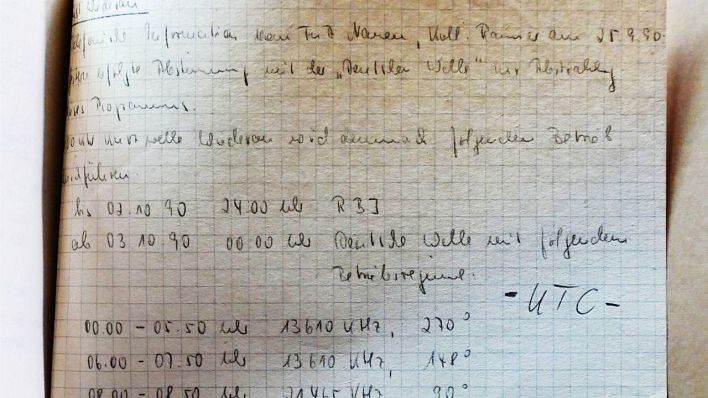 Wiederau
Information vom FuA Nauen, Koll. am 25.9.90
erfolgte Abstimmung mit der „Deutschen Welle" zur Abstrahlung
Programms.
Kurzwelle Wiederau wird demnach folgenden Betrieb
durchführen.
bis 02.10.90 24.00 Uhr RBI
ab 03.10.90 00.00 Uhr Deutsche Welle mit folgendem
Betriebsregime.
- UTC -
00.00 - 05.50 Uhr 13610 KHz, 270°
06.00 - 07.50 Uhr 13610 KHz, 148°
08.00 - 08.50 Uhr 21465 KHz 90°